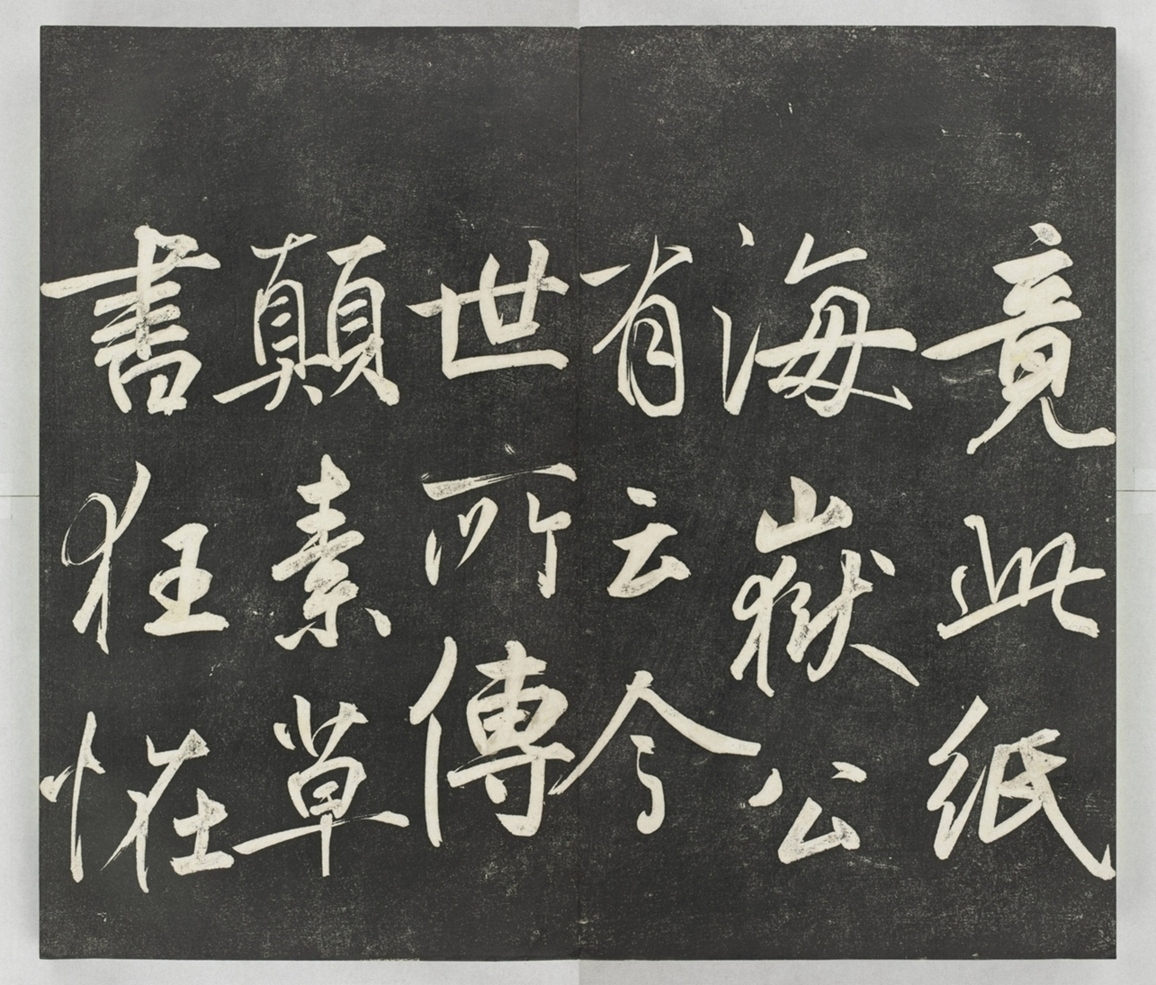 竟此紙
海嶽公
有云今
世所傳
顛素草
書狂怪